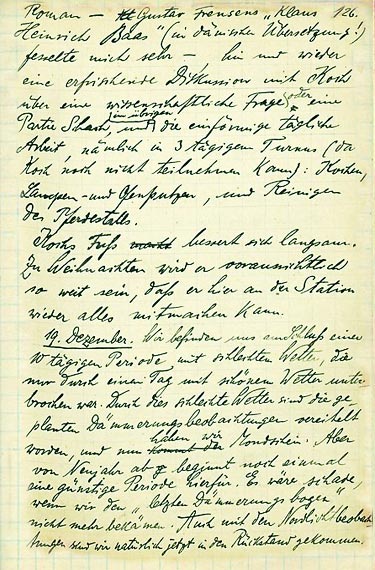 Roman – Gustav Frensens „Klaus 126.
Heinrich Baas" (in dänischer Übersetzung!)
fesselte mich sehr –, hin und wieder
eine erfrischende Diskussion mit Koch
über eine wissenschaftliche Frage oder eine
Partie Schach, im übrigen und die einförmige tägliche
Arbeit, nämlich in 3 tägigem Turnus (da
Koch noch nicht teilnehmen kann): Kochen,
Lampen- und Ofenputzen, und Reinigen
des Pferdestalls.
Kochs Fuß macht bessert sich langsam.
Zu Weihnachten wird er voraussichtlich
so weit sein, daß er hier an der Station
wieder alles mitmachen kann.
19. Dezember. Wir befinden uns am Schluß einer
10 tägigen Periode mit schlechtem Wetter, die
nur durch einen Tag mit schönem Wetter unter-
brochen war. Durch dies schlechte Wetter sind die ge-
planten Dämmerungsbeobachtungen vereitelt
worden, und nun kommt der haben wir Mondschein. Aber
von Neujahr ab beginnt noch einmal
eine günstige Periode hierfür. Es wäre schade,
wenn wir den „letzten Dämmerungsbogen"
nicht mehr bekämen. Auch mit den Nordlichtbeobach-
tungen sind wir natürlich jetzt in den Rückstand gekommen.